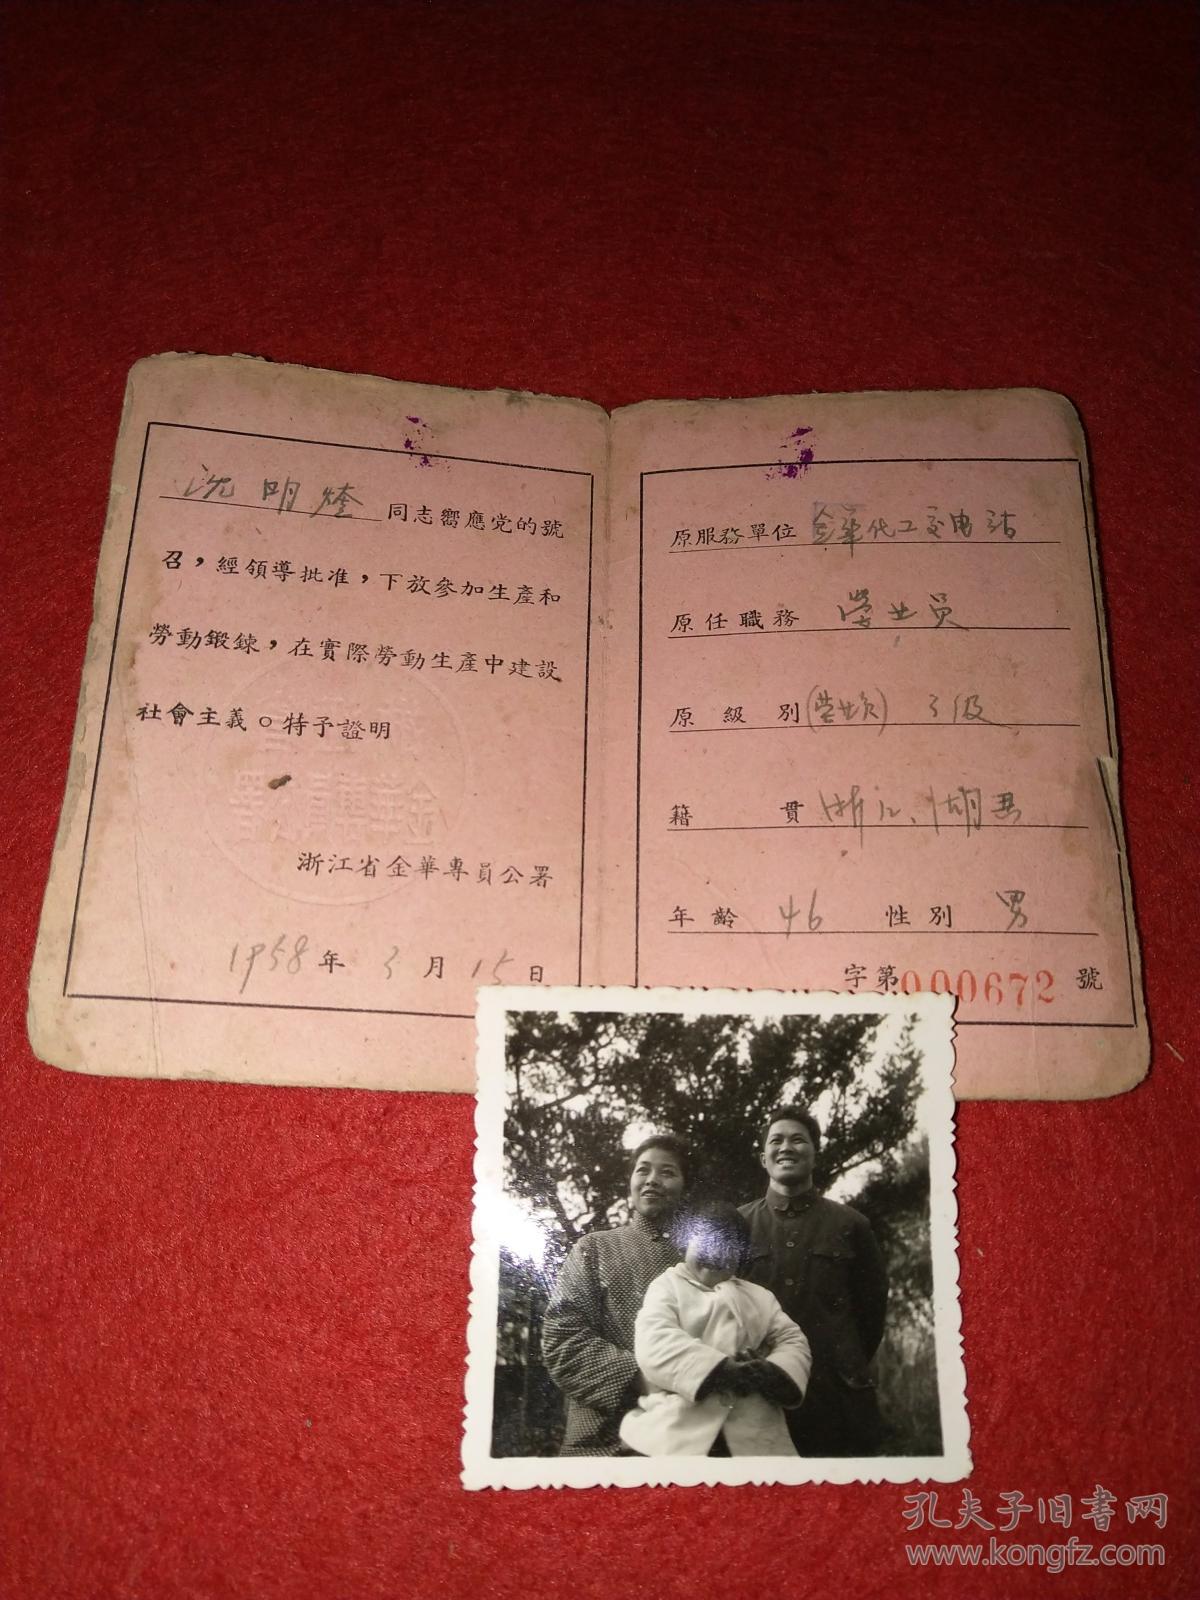 沈明煃 同志嚮應党的號
召，經領導批准，下放參加生產和
勞動鍛鍊，在實際勞動生產中建設
社會主義。特予證明
浙江省金華專員公署
1958年3月15日
原服務單位 金華化工交电站
原任職務 营业员
原級別(营业员)3級
籍貫 浙江
年齡 46 性別 男
字第000672號
孔夫子旧書网
www.kongfz.com